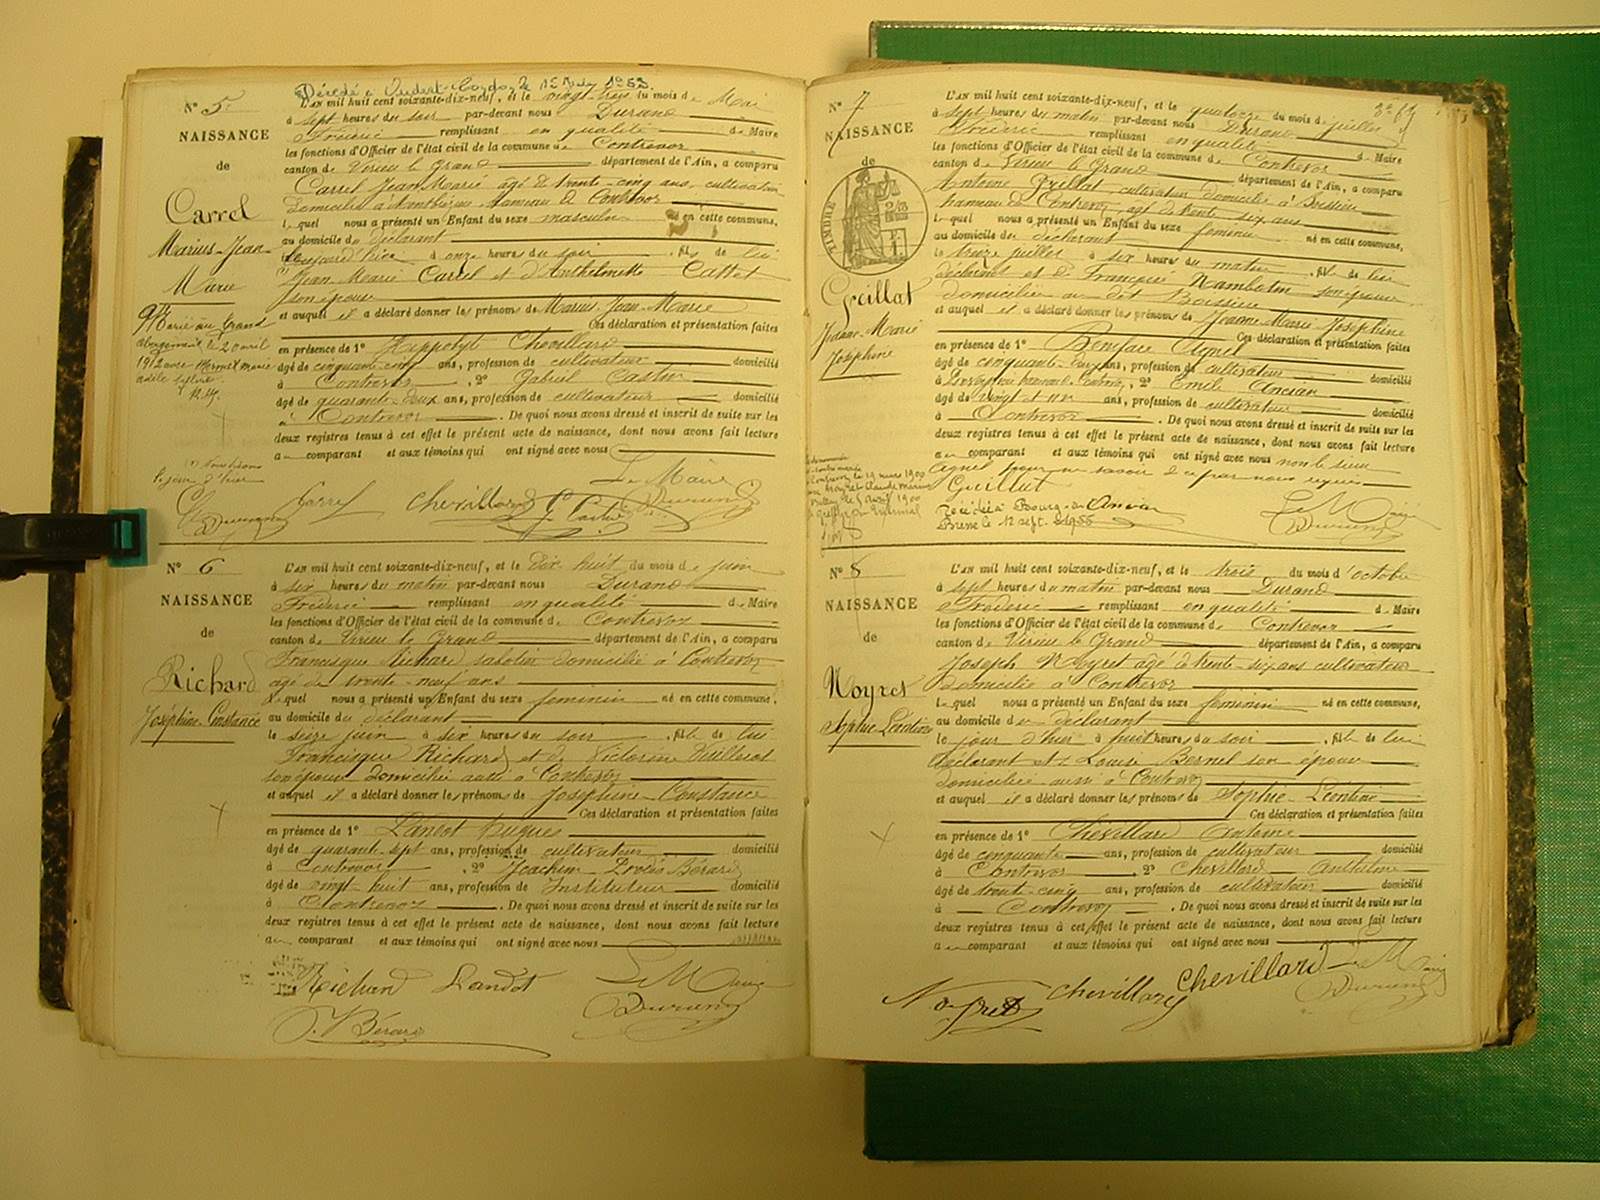 N° 5
NAISSANCE
de
Carrel
Marius-Jean-
Marie
Marié au Grand
Abergement le 20 avril
1912 avec
Décédé à
L'an mil huit cent soixante-dix-neuf, et le vingt-trois du mois de Mai
à sept heures du soir par-devant nous Durand
Fréderic remplissant en qualité de Maire
les fonctions d'Officier de l'état civil de la commune de Contrevoz
canton de Virieu le Grand département de l'Ain, a comparu
Carrel Jean Marie âgé de trente-cinq ans, cultivateur
domicilié à hameau de Contrevoz
lequel nous a présenté un Enfant du sexe masculin né en cette commune,
au domicile du déclarant
à onze heures du soir, fils de lui
Jean Marie Carrel et d'Anthelmette Cattet
son épouse
et auquel il a déclaré donner les prénoms de Marius-Jean-Marie
Ces déclaration et présentation faites
en présence de 1° Hippolyte Chevillard
âgé de cinquante-cinq ans, profession de cultivateur domicilié
à Contrevoz, 2° Gabriel Castin
âgé de quarante-deux ans, profession de cultivateur domicilié
à Contrevoz. De quoi nous avons dressé et inscrit de suite sur les
deux registres tenus à cet effet le présent acte de naissance, dont nous avons fait lecture
au comparant et aux témoins qui ont signé avec nous
Le Maire
Carrel Chevillard G Castin Durand
N° 6
NAISSANCE
de
Richard
Joséphine-Constance
L'an mil huit cent soixante-dix-neuf, et le dix huit du mois de juin
à six heures du matin par-devant nous Durand
Fréderic remplissant en qualité de Maire
les fonctions d'Officier de l'état civil de la commune de Contrevoz
canton de Virieu le Grand département de l'Ain, a comparu
Francisque Richard sabotier domicilié à Contrevoz
âgé de trente-neuf ans
lequel nous a présenté un Enfant du sexe feminin né en cette commune,
au domicile du déclarant
le seize juin à six heures du soir, fille de lui
Francisque Richard et de Victorine
son épouse domiciliée aussi à Contrevoz
et auquel il a déclaré donner les prénoms de Joséphine-Constance
Ces déclaration et présentation faites
en présence de 1° Landot Hugues
âgé de quarante-sept ans, profession de cultivateur domicilié
à Contrevoz, 2° Joachim Bérard
âgé de vingt huit ans, profession de Instituteur domicilié
à Contrevoz. De quoi nous avons dressé et inscrit de suite sur les
deux registres tenus à cet effet le présent acte de naissance, dont nous avons fait lecture
au comparant et aux témoins qui ont signé avec nous
Richard Landot Le Maire
J. Bérard Durand
N° 7
NAISSANCE
de
TIMBRE
Greillat
Jeanne-Marie
Joséphine
L'an mil huit cent soixante-dix-neuf, et le quatorze du mois de juillet
à sept heures du matin par-devant nous Durand
Fréderic remplissant en qualité de Maire
les fonctions d'Officier de l'état civil de la commune de Contrevoz
canton de Virieu le Grand département de l'Ain, a comparu
Antoine Greillat, cultivateur domicilié à Boissieu
hameau de Contrevoz, âgé de trente six ans
lequel nous a présenté un Enfant du sexe feminin né en cette commune,
au domicile du déclarant
le treize juillet à six heures du matin, fille de lui
déclarant et de Françoise son épouse
domiciliée au dit Boissieu
et auquel il a déclaré donner les prénoms de Jeanne-Marie-Joséphine
Ces déclaration et présentation faites
en présence de 1° Boniface Agnel
âgé de cinquante-deux ans, profession de cultivateur domicilié
à hameau de Contrevoz, 2° Emile Ancian
âgé de vingt et un ans, profession de cultivateur domicilié
à Contrevoz. De quoi nous avons dressé et inscrit de suite sur les
deux registres tenus à cet effet le présent acte de naissance, dont nous avons fait lecture
au comparant et aux témoins qui ont signé avec nous non le sieur
Agnel pour ne savoir de ce par nous requis
Greillat
Décédée à Bourg-en Ancian Le Maire
Bresse le 12 sept. Durand
N° 8
NAISSANCE
de
Noyret
Sophie-Léontine
L'an mil huit cent soixante-dix-neuf, et le trois du mois d'octobre
à sept heures du matin par-devant nous Durand
Fréderic remplissant en qualité de Maire
les fonctions d'Officier de l'état civil de la commune de Contrevoz
canton de Virieu le Grand département de l'Ain, a comparu
Joseph Noyret âgé de trente-six ans cultivateur
domicilié à Contrevoz
lequel nous a présenté un Enfant du sexe feminin né en cette commune,
au domicile du déclarant
le jour d'hier à huit heures du soir, fille de lui
déclarant et Louise Bornet son épouse
domiciliée aussi à Contrevoz
et auquel il a déclaré donner les prénoms de Sophie-Léontine
Ces déclaration et présentation faites
en présence de 1° Chevillard Antoine
âgé de cinquante ans, profession de cultivateur domicilié
à Contrevoz, 2° Chevillard Anthelme
âgé de trente-cinq ans, profession de cultivateur domicilié
à Contrevoz. De quoi nous avons dressé et inscrit de suite sur les
deux registres tenus à cet effet le présent acte de naissance, dont nous avons fait lecture
au comparant et aux témoins qui ont signé avec nous
Noyret Chevillard Chevillard Le Maire
Durand